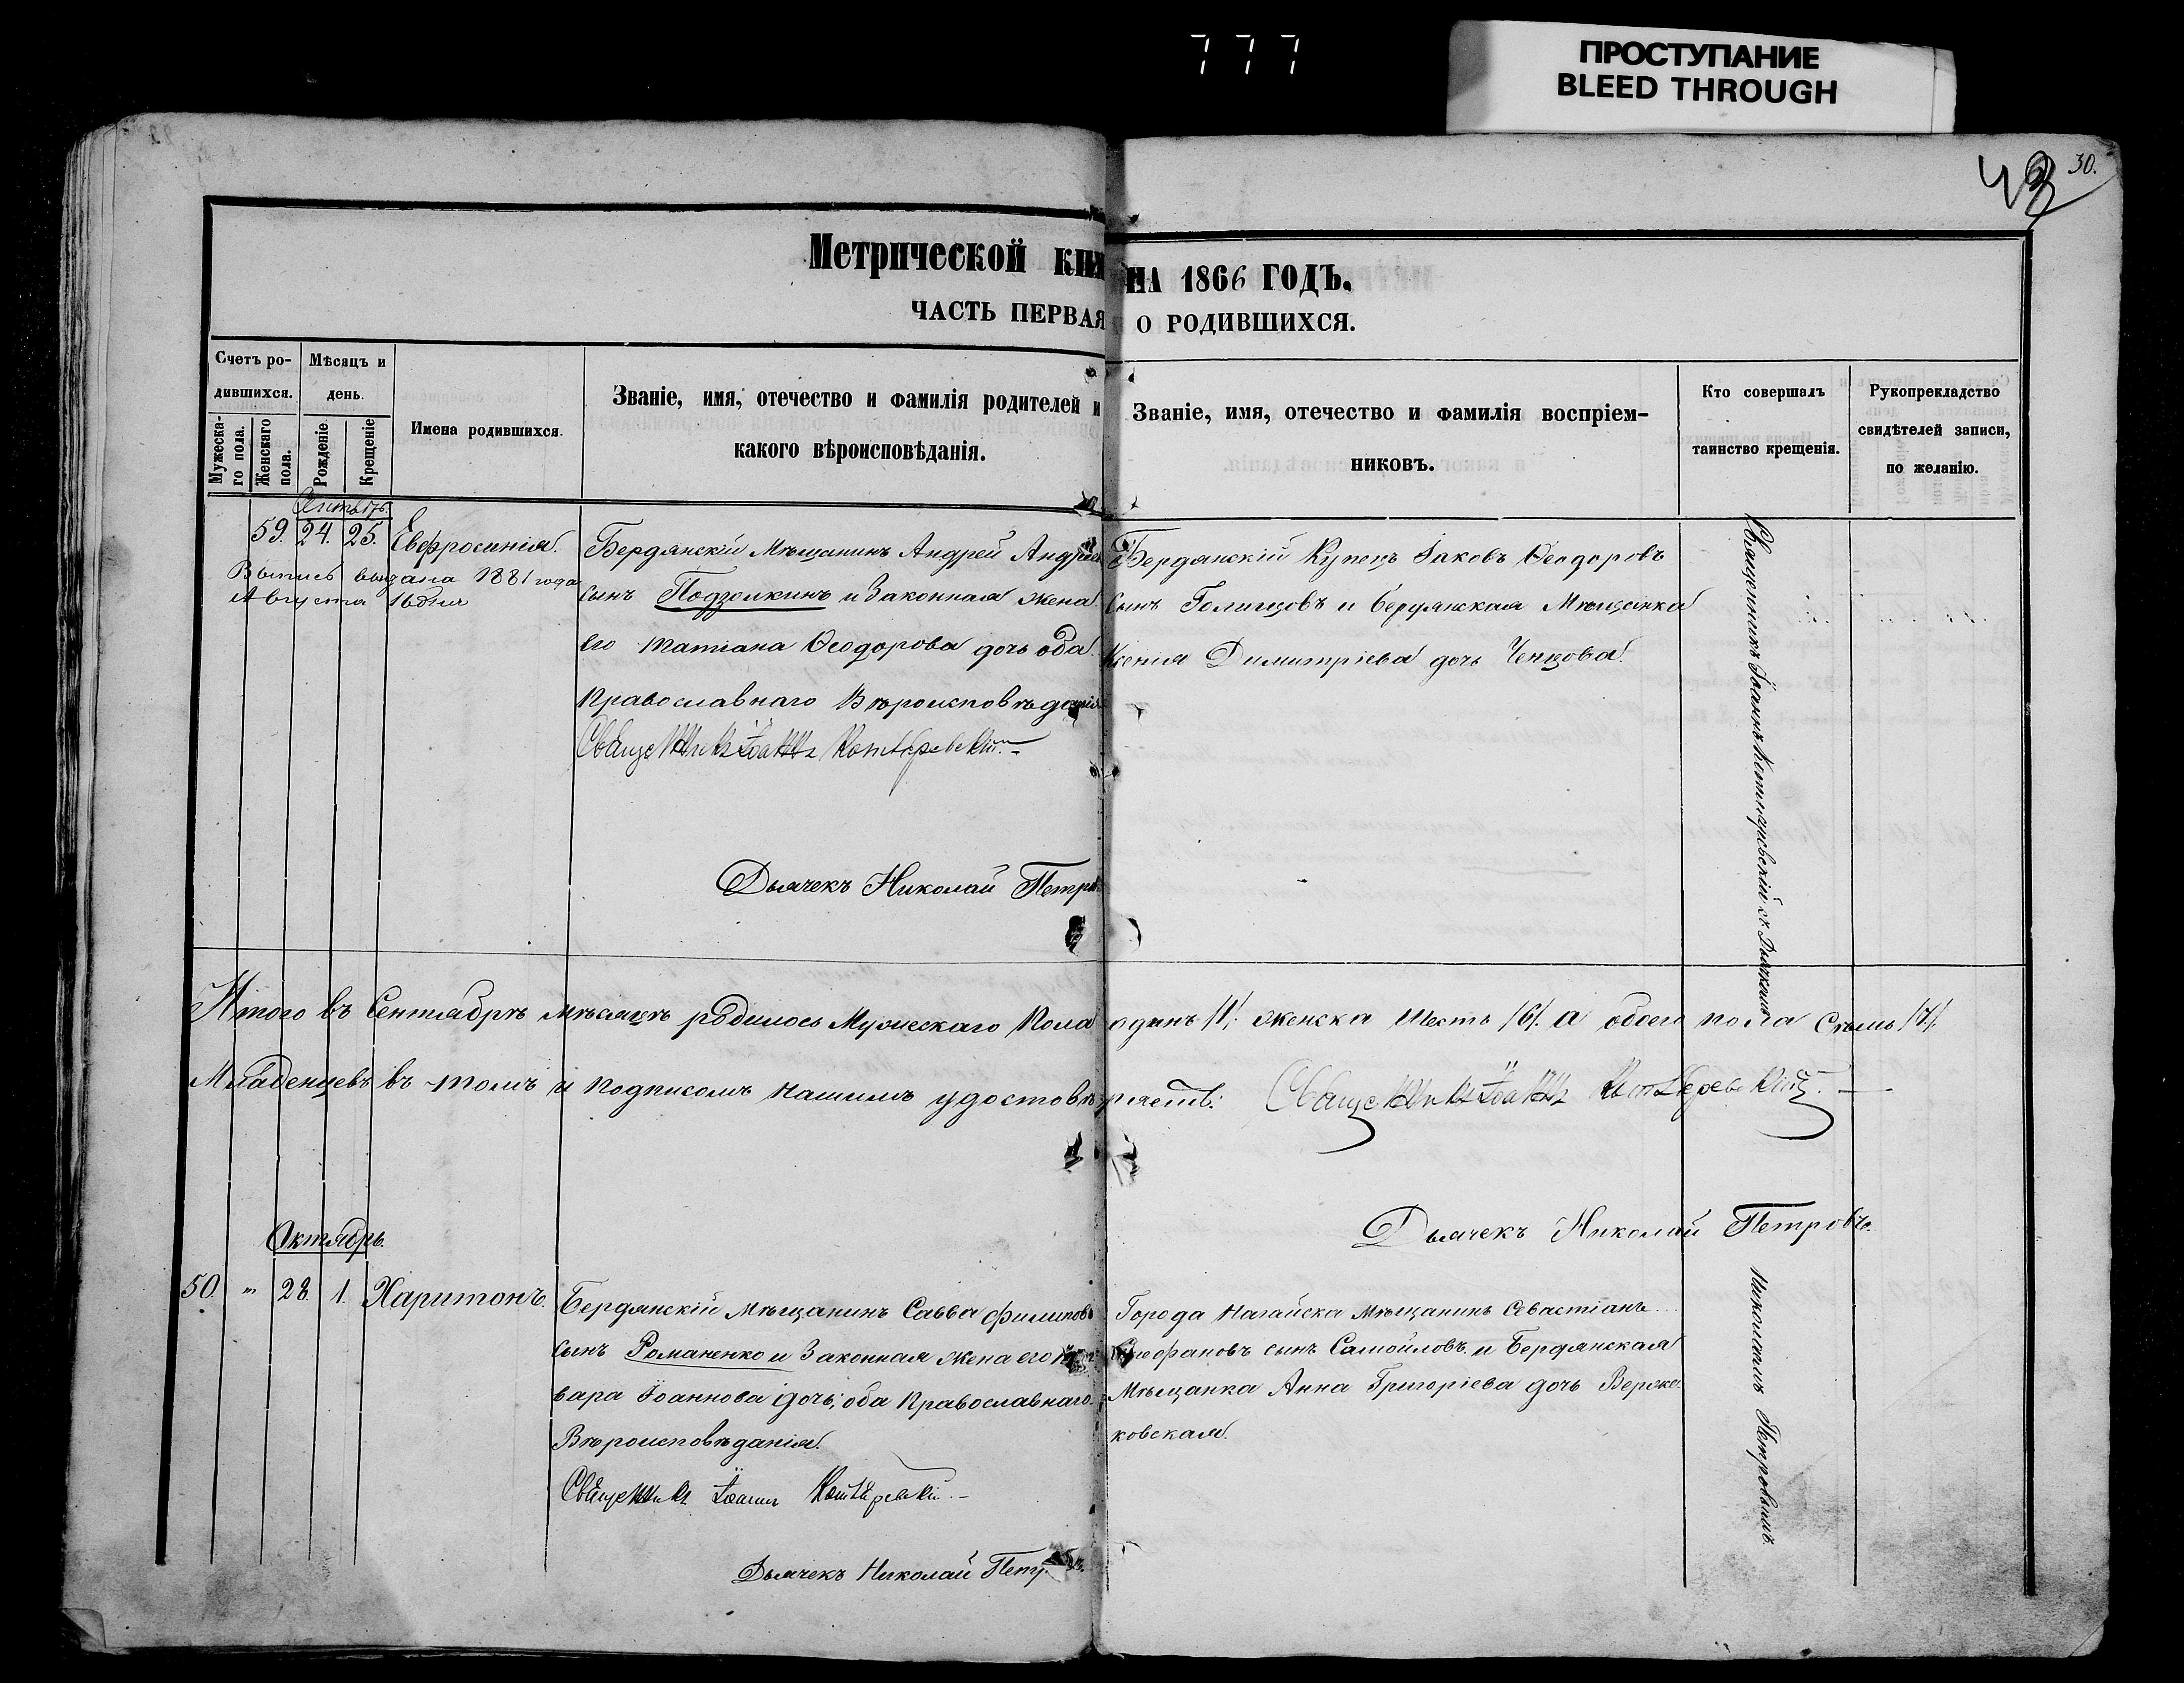 777
ПРОСТУПАНИЕ
BLEED THROUGH
30.
Метрической кни на 1866 ГОДЪ.
ЧАСТЬ ПЕРВАЯ О РОДИВШИХСЯ.
Счетъ ро-
дившихся.
Мужеска-
го пола.
Женскаго
пола.
Мѣсяцъ и
день.
Рожденіе.
Крещеніе
Имена родившихся.
Званіе, имя, отечество и фамилія родителей и
какого вѣроисповѣданія.
Званіе, имя, отечество и фамилія воспріем-
никовъ.
Кто совершалъ
таинство крещенія.
Рукопрекладство
свидѣтелей записи,
по желанію.
59. 24. 25. Евфросинія.
Выпись выдана 1881 года
Августа 16 дня
Бердянскій Мѣщанинъ Андрей Андреев
сынъ Подзолкинъ и Законная жена
его Татіана Ѳеодорова дочь оба
Православнаго Вѣроисповѣданія
Священникъ Іоаннъ
Дьячекъ Николай Петров
Бердянскій Купецъ Іаковъ Ѳеодоровъ
сынъ Голицовъ и Бердянская Мѣщанка
Ксенія Димитріева дочь Ченцова.
Священникъ Іоаннъ съ Дьячкомъ
Итого въ Сентябрѣ мѣсяцѣ родилось Мужескаго Пола одинъ /1/. женска Шесть /6/. а обоего пола Семь /7/.
Младенцевъ въ томъ и подписомъ нашимъ удостовѣряемъ: Священникъ Іоаннъ
Дьячекъ Николай Петровъ.
Октябрь.
50. " 28. 1. Харитонъ.
Бердянскій Мѣщанинъ Савва Филиповъ
сынъ Романенко и Законная жена его
вара Іоаннова дочь, оба Православнаго
Вѣроисповѣданія.
Священникъ Іоаннъ
Дьячекъ Николай Петр
Города Нагайска Мѣщанинъ Севастіанъ
сынъ Самойловъ. и Бердянская
Мѣщанка Анна Григоріева дочь
ковская.
Николаемъ Петровымъ.